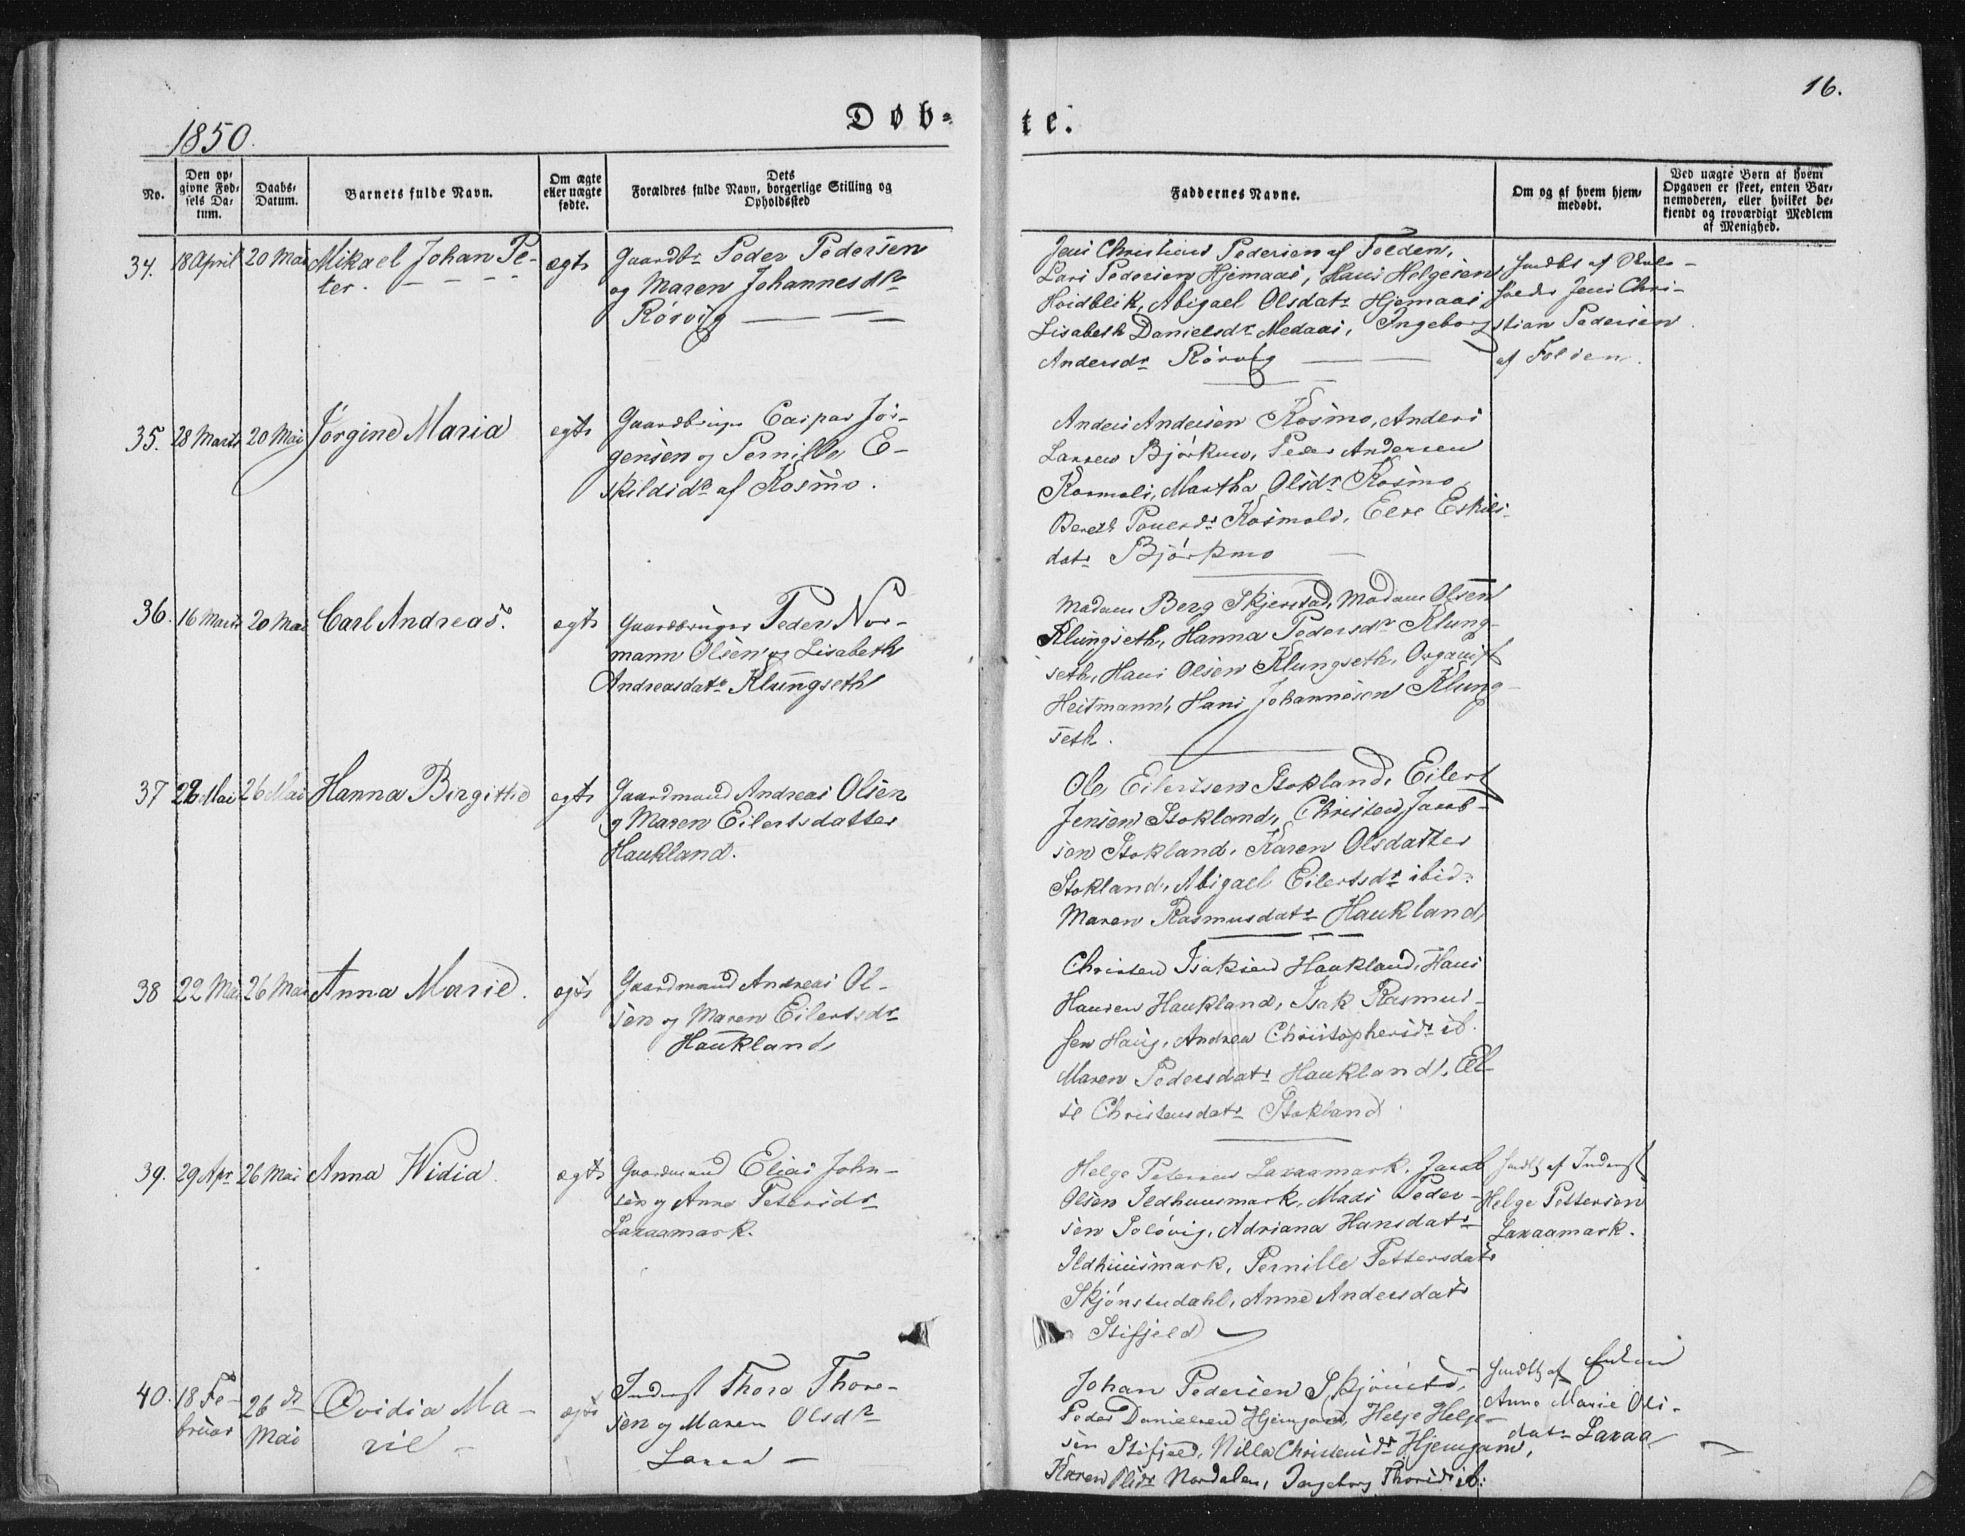 16.
Døb-
te.
1850.
No.
Den op-
givne Fød-
sels Da-
tum.
Daabs-
Datum.
Barnets fulde Navn.
Om ægte
eller uægte
fødte.
Dets
Forældres fulde Navn, borgerlige Stilling og
Opholdssted
Faddernes Navne.
Om og af hvem hjem-
medøbt.
Ved uægte Børn af hvem
Opgaven er skeet, enten Bar-
nemoderen, eller hvilket be-
kjendt og troværdigt Medlem
af Menighed.
34. 18 April 20 Mai Mikael Johan Pe-
ter.
ægte
Gaardbr Peder Pedersen
og Maren Johannesdr
Rørvig
Jens Christian Pedersen af Folden,
Lars Pedersen Hjemaas, Hans Helgesen
Hvidblik, Abigael Olsdatr Hjemaas
Lisabeth Danielsdr Medaas, Ingeborg
Andersdr Rørvig
Jens Chri-
stian Pedersen
af Folden.
35. 28 Marts 20 Mai Jørgine Maria
egte
Gaardbruger Caspar Jør-
gensen og Pernille E-
skildsdr af Kosmo.
Anders Andersen Kosmo, Anders
Larsen Bjørkmo, Peder Andersen
Kosmoli, Martha Olsdr Kosmo
Bereth Poulsdr Kosmoli, Else Eskils-
datr Bjørkmo
36. 16 Marts 20 Mai Carl Andreas.
egte
Gaardbruger Peder Nor-
mann Olsen og Lisabeth
Andreasdatr Klungseth
Madam Berg Skjerstad, Madam Olsen
Klungseth, Hanna Pedersdr Klung-
seth, Hans Olsen Klungseth, Organist
Heitmann, Hans Johannesen Klung-
seth.
37 22 Mai 26 Mai Hanna Birgithe
egte
Gaardmand Andreas Olsen
og Maren Eilertsdatter
Haukland.
Ole Eilertsen Stokland, Eilert
Jensen Stokland, Christen Jacob-
sen Stokland, Karen Olsdatter
Stokland, Abigael Eilertsdr ibid.
Maren Rasmusdatr Haukland
38 22 Mai 26 Mai Anna Marie.
egte
Gaardmand Andreas Ol-
sen og Maren Eilertsdr
Haukland
Christen Isaksen Haukland, Hans
Hansen Haukland, Isak Rasmus-
sen Haug, Andrea Christophersdr ib.
Maren Pedersdatr Haukland, El-
se Christensdatr Stokland
39. 29 Apr 26 Mai Anna Widia.
ægte
Gaardmand Elias John-
sen og Anne Petersdr
Laxaamark.
Helge Petersen Laxaamark, Jacob
Olsen Ildhuusmark, Mads Peder-
sen Soløvig, Adriana Hansdatr
Ildhuusmark, Pernille Pettersdatr
Skjønstudahl, Anne Andersdatr
Stifjeld
hmdbt af Inderst
Helge Pettersen
Laxaamark.
40. 18 Fe-
bruar
26 de
Mai
Ovidia Ma-
rie
ægte
Inderst Thore Thore-
sen og Maren Olsdr
Laxaa
Johan Pedersen Skjønstd,
Peder Danielsen Hjemgam, Helge Helge-
sen Stifjeld, Nilla Christensdr Hjemgam,
Karen Olsdr Nordalen, Ingeborg Thorisdr ib.
hmdbt af Enken
Anne Marie Ols-
datr Laxaa